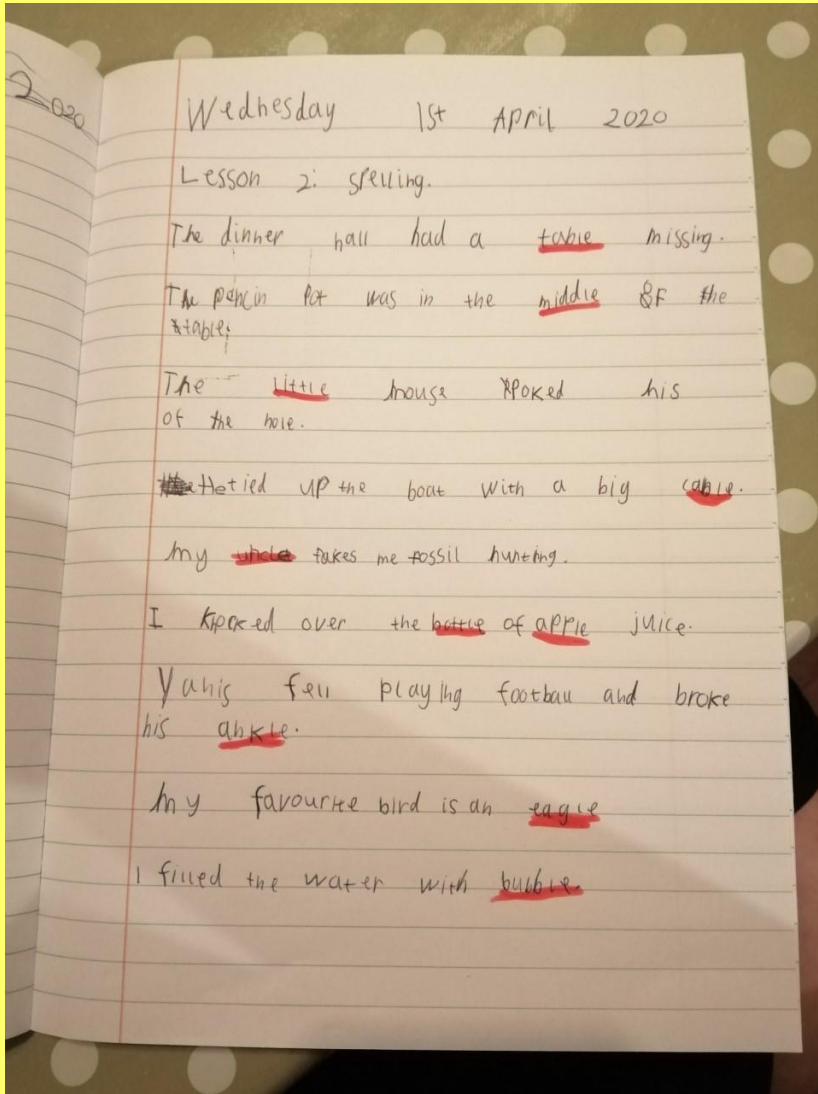 2020
Wednesday 1st April 2020
Lesson 2: spelling.
The dinner hall had a table missing.
The pencin Pot was in the middle of the
table.
The little mouse poked his
of the hole.
He tied up the boat with a big cable.
my uncle takes me fossil hunting.
I knocked over the bottle of apple juice.
Yanis fell playing football and broke
his ankle.
my favourite bird is an eagle
I filled the water with bubble.